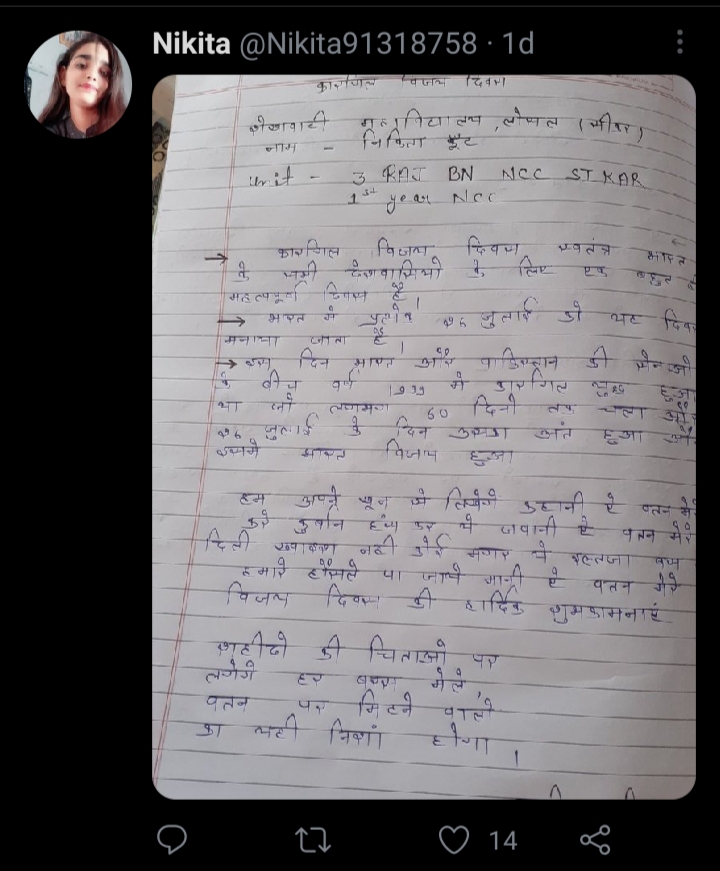 Nikita @Nikita91318758 · 1d
कारगिल विजय दिवस
शेखावाटी महाविद्यालय, लोसल (सीकर)
नाम - निकिता
Unit - 3 RAJ BN NCC SIKAR
1st year NCC
→ कारगिल विजय दिवस स्वतंत्र भारत
के सभी देशवासियो के लिए एक बहुत ही
महत्वपूर्ण दिवस है।
→ भारत मे प्रत्येक २६ जुलाई को यह दिवस
मनाया जाता है।
→ इस दिन भारत और पाकिस्तान की सेनाओ
के बीच वर्ष 1999 मे कारगिल युद्ध हुआ
था जो लगभग 60 दिनो तक चला और
२६ जुलाई के दिन उसका अंत हुआ और
इसमे भारत विजय हुआ
हम अपने खून से लिखेगे कहानी ऐ वतन मेरे
करे कुर्बान हंस कर ये जवानी ऐ वतन मेरे
दिली ख्वाइश नही कोई मगर ये इल्तजा बस
हमारे हौसले पा जाये मानी ऐ वतन मेरे
विजय दिवस की हार्दिक शुभकामनाएं
शहीदो की चिताओ पर
लगेगे हर बरस मेले,
वतन पर मिटने वालो
का यही निशां होगा।
14